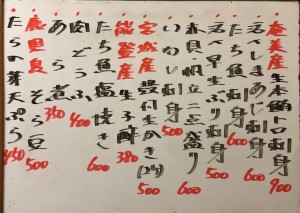 奄美産生本鮪トロ刺身 900
活〆しまあじ刺身
たちうお刺身 600
活〆早生ぶり刺身
赤貝・帆立二点盛り 600
いわし刺身 500
宮城産殻付生かき(2ヶ) 500
能登産もずく酢 380
たち魚塩焼き 600
肉どうふ 400
あら煮 350
鹿児島産そら豆 500
たらの芽天ぷら 450